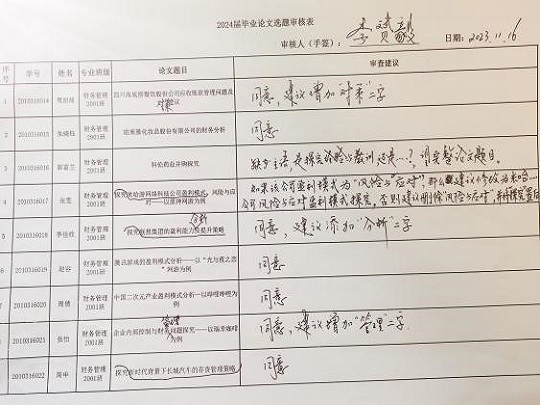 2024届毕业论文选题审核表
审核人（手签）： 李贤毅 日期：2023.11.16
序号 学号 姓名 专业班级 论文题目 审查建议
1 2010316014 财务管理2001班 四川海底捞餐饮股份有限公司应收账款管理问题及对策 建议 同意，建议增加"对策"二字
2 2010316015 张晓钰 财务管理2001班 珀莱雅化妆品股份有限公司的财务分析 同意
3 2010316016 郭富兰 财务管理2001班 科伦药业并购探究 缺少主语，是探究经验与教训还是…？，请完整论文题目。
4 2010316017 张雯 财务管理2001班 探究米哈游网络科技公司盈利模式，风险与应对——以原神网游为例 如果该公司盈利模式为"风险与应对"那么建议修改为米哈…公司风险与应对盈利模式探究，否则建议删除"风险与应对"，并将探究置后
5 2010316018 李佳欣 财务管理2001班 探究联想集团的盈利能力分析及提升策略 同意，建议添加"分析"二字
6 2010316019 赵谷 财务管理2001班 腾讯游戏的盈利模式分析——以"光与夜之恋"网游为例 同意
7 2010316020 周倩 财务管理2001班 中国二次元产业盈利模式分析——以哔哩哔哩为例 同意
8 2010316021 张怡 财务管理2001班 企业内部控制与财务管理问题探究——以瑞幸咖啡为例 同意，建议增加"管理"二字
2010316022 周申 财务管理2001班 探究新时代背景下长城汽车的存货管理策略 同意